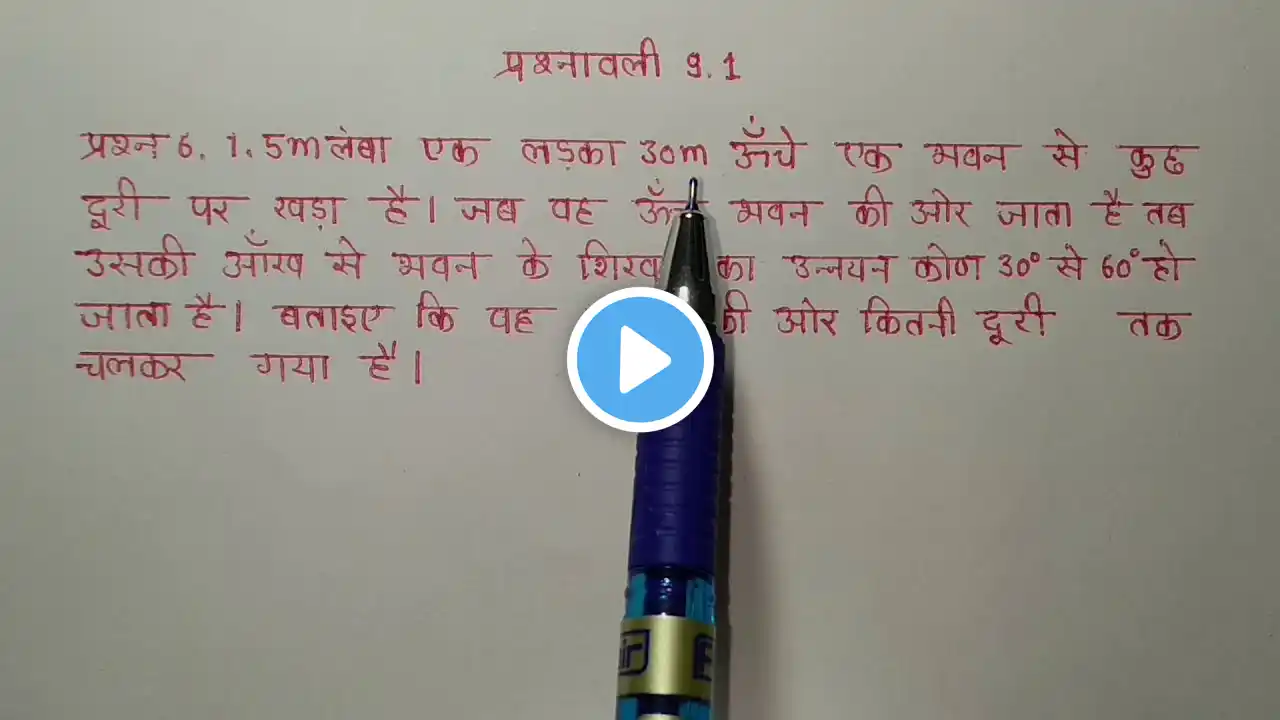 प्रश्नावली 9.1
प्रश्न 6. 1.5m लंबा एक लड़का 30m ऊँचे एक भवन से कुछ
दूरी पर खड़ा है। जब वह भवन की ओर जाता है तब
उसकी आँख से भवन के शिखर का उन्नयन कोण 30° से 60° हो
जाता है। बताइए कि वह की ओर कितनी दूरी तक
चलकर गया है।